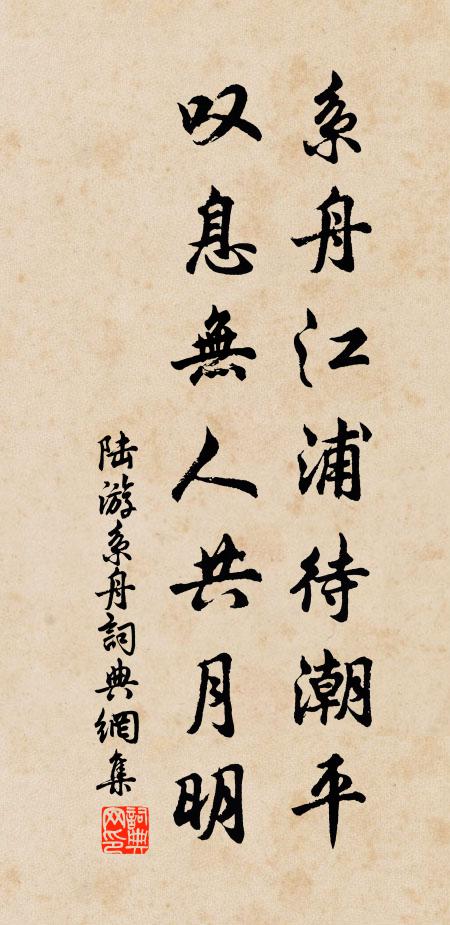 系舟江浦待潮平
叹息無人共月明
陆游系舟詞典網集
詞典网印